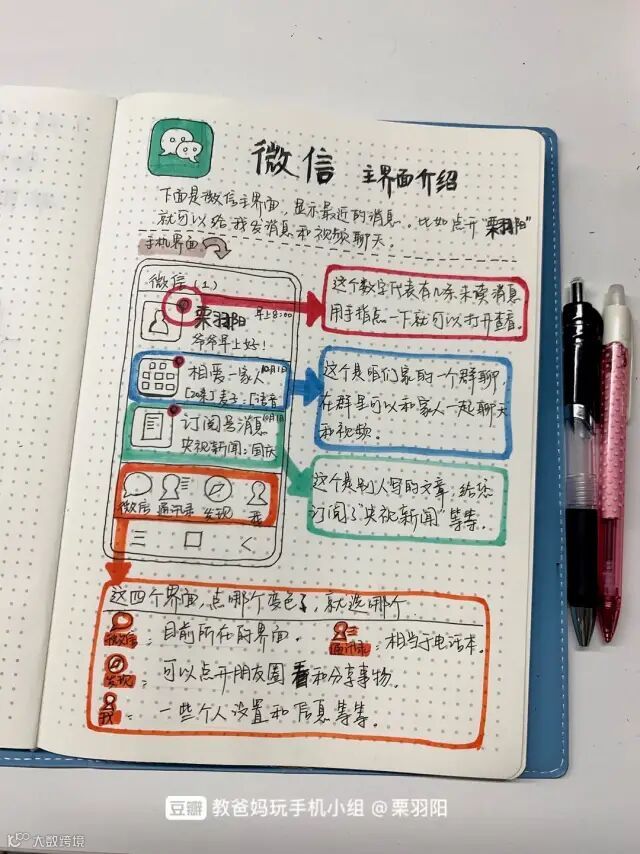 微信 主界面介绍
下面是微信主界面，显示最近的消息。比如点开“栗羽阳”
就可以给我发消息和视频聊天。
手机界面
微信(1)
栗羽阳 早上8:00
爷爷早上好！
相爱一家人 10月1日
[20条]麦子:[语音
订阅号消息 10月1日
央视新闻:国庆
微信 通讯录 发现 我
这个数字代表有几条未读消息
用手指点一下就可以打开查看。
这个是咱们家的一个群聊，
在群里可以和家人一起聊天
和视频。
这个是别人写的文章，给您
订阅了“央视新闻”等等。
这四个界面，点哪个变色了，就选哪个
微信：目前所在的界面。 通讯录：相当于电话本。
发现：可以点开朋友圈看和分享事物。
我：一些个人设置和信息等等。
豆瓣 教爸妈玩手机小组 @栗羽阳
大数跨境